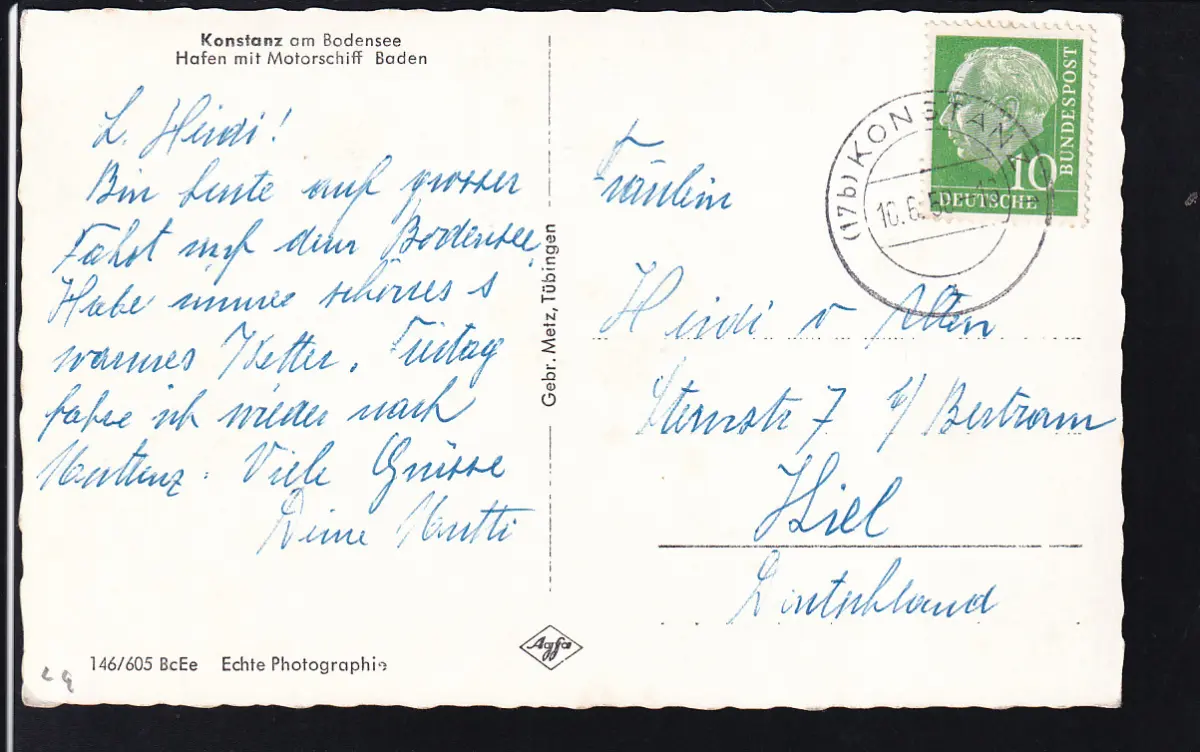 Konstanz am Bodensee
Hafen mit Motorschiff Baden
L. Heidi!
Bin heute auf grosser
Fahrt auf dem Bodensee.
Habe immer schönes &
warmes Wetter. Freitag
fahre ich wieder nach
Viele Grüsse
Deine Mutti
146/605 BcEe Echte Photographie
Gebr. Metz, Tübingen
Agfa
(17b) KONSTANZ
10.6.5
10
DEUTSCHE
BUNDESPOST
Fräulein
Heidi v Alten
Sternstr 7 b/ Bertram
Kiel
Deutschland